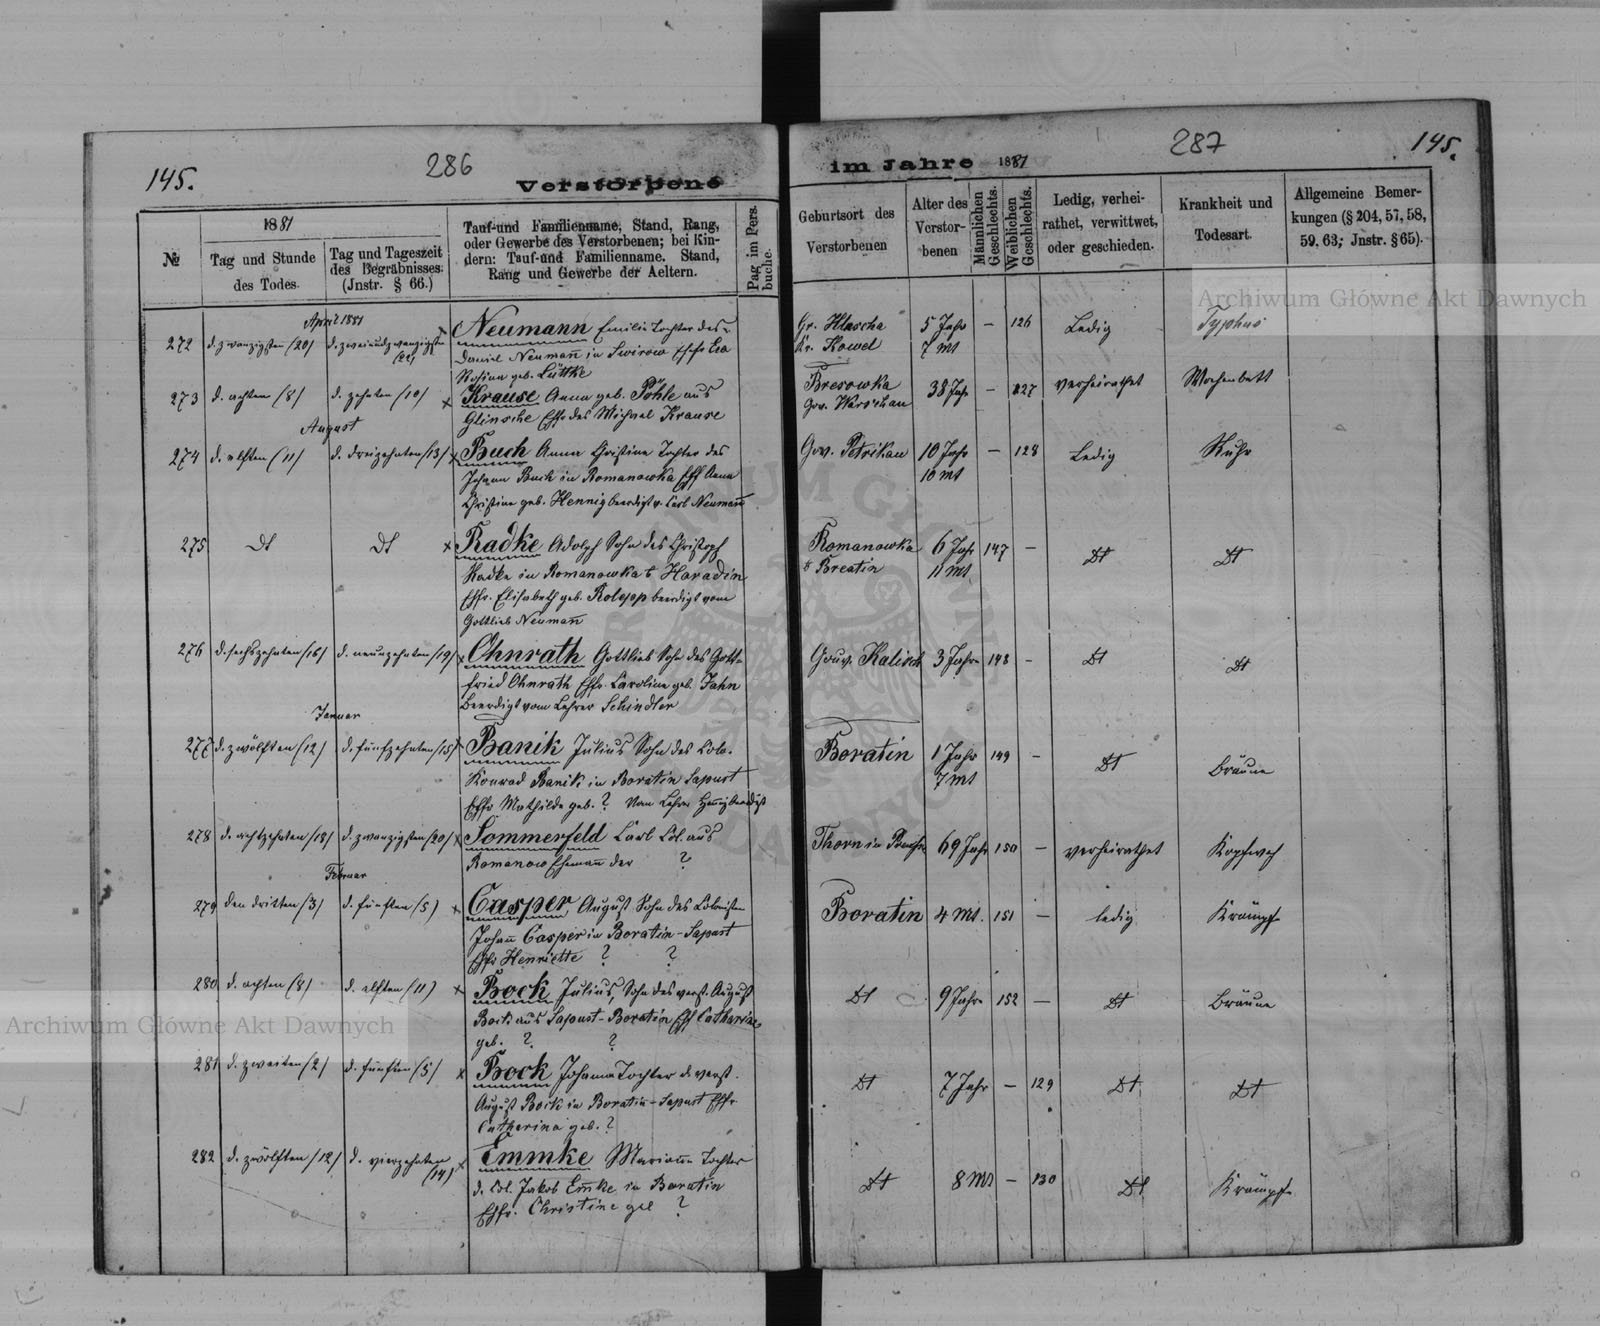 145.
286
Verstorbene
№
1881
Tag und Stunde
des Todes.
Tag und Tageszeit
des Begräbnisses.
(Jnstr. § 66.)
Tauf-und Familienname, Stand, Rang,
oder Gewerbe des Verstorbenen; bei Kin-
dern: Tauf-und Familienname. Stand,
Rang und Gewerbe der Aeltern.
Pag im Pers.
buche.
April 1881
272 d. zwanzigsten (20) d. zweiundzwanzigsten (22) × Neumann Emilie Tochter des
Daniel Neumann in Swirow Ehfr Eva
Rosina geb. Lüttke
273 d. achten (8) d. zehnten (10) × Krause Anna geb. Pöhle aus
Glinsche Ehfr des Michael Krause
August
274 d. elften (11) d. dreizehnten (13) × Buch Anna Christine Tochter des
Johann Buch in Romanowka Ehf Anna
Christine geb. Hennig beerdigt v. Carl Neumann
275 Dt Dt × Radke Adolph Sohn des Christoph
Radke in Romanowka b Haradin
Ehfr. Elisabeth geb. beerdigt vom
Gottlieb Neumann
276 d. sechszehnten (16) d. neunzehnten (19) × Ohnrath Gottlieb Sohn des Gott-
fried Ohnrath Ehfr. Caroline geb. Jahn
Beerdigt vom Lehrer Schindler
Januar
277 d. zwölften (12) d. fünfzehnten (15) × Banik Julius Sohn des Colo.
Konrad Banik in Boratin Sapust
Ehfr Mathilde geb. ? Vom Lehrer Hennig beerdigt
278 d. achtzehnten (18) d. zwanzigsten (20) × Sommerfeld Carl Col. aus
Romanow Ehemann der ?
Februar
279 den dritten (3) d. fünften (5) × Casper August Sohn des Colonisten
Johann Casper in Boratin-Sapust
Ehfr Henriette ? ?
280 d. achten (8) d. elften (11) × Bock Julius, Sohn des verst. August
Bock aus Sapust-Boratin Ehf Catharina
geb. ? ?
281 d. zweiten (2) d. fünften (5) × Bock Johanna Tochter d. verst.
August Bock in Boratin-Sapust Ehfr.
Catherina geb. ?
282 d. zwölften (12) d. vierzehnten (14) × Emmke Marianna Tochter
d. Col. Jakob Emke in Boratin
Ehfr. Christine geb ?
287
145.
im Jahre 1881
Geburtsort des
Verstorbenen
Alter des
Verstor-
benen
Männlichen
Geschlechts.
Weiblichen
Geschlechts.
Ledig, verhei-
rathet, verwittwet,
oder geschieden.
Krankheit und
Todesart.
Allgemeine Bemer-
kungen (§ 204, 57, 58,
59. 63; Jnstr. § 65).
Gr. Hlascha 5 Jahr – 126 Ledig Typhus
Kr. Kowel 7 Mt
Bresowka 38 Jahr – 127 verheirathet Wochenbett
Gov. Warschau
Gov. Petrikau 10 Jahr – 128 Ledig Ruhr
10 Mt
Romanowka 6 Jahr 147 – Dt Dt
11 Mt
Gouv. Kalisch 3 Jahre 148 – Dt Dt
Boratin 1 Jahr 149 – Dt Bräune
7 Mt
Thorn in Preußen 69 Jahr 150 – verheirathet Kopfweh
Boratin 4 Mt. 151 – ledig Krämpfe
Dt 9 Jahre 152 – Dt Bräune
Dt 7 Jahr – 129 Dt Dt
Dt 8 Mt – 130 Dt Krämpfe
Archiwum Główne Akt Dawnych
Archiwum Główne Akt Dawnych